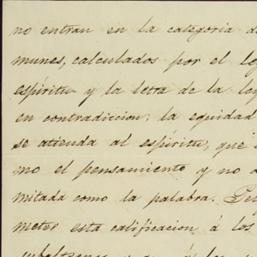 no entran en la categoria de
munes, calculados por el le
espíritu y la letra de la ley
en contradiccion; la equidad
se atienda al espíritu, que
mo el pensamiento y no
mitada como la palabra.
meter esta calificacion á los